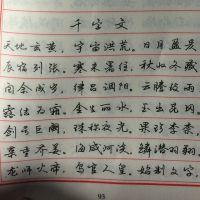 千字文
天地玄黄，宇宙洪荒。日月盈昃
辰宿列张。寒来暑往，秋收冬藏
闰余成岁，律吕调阳。云腾致雨
露结为霜。金生丽水，玉出昆冈
剑号巨阙，珠称夜光。果珍李柰
菜重芥姜。海咸河淡，鳞潜羽翔
龙师火帝，鸟官人皇。始制文字
93